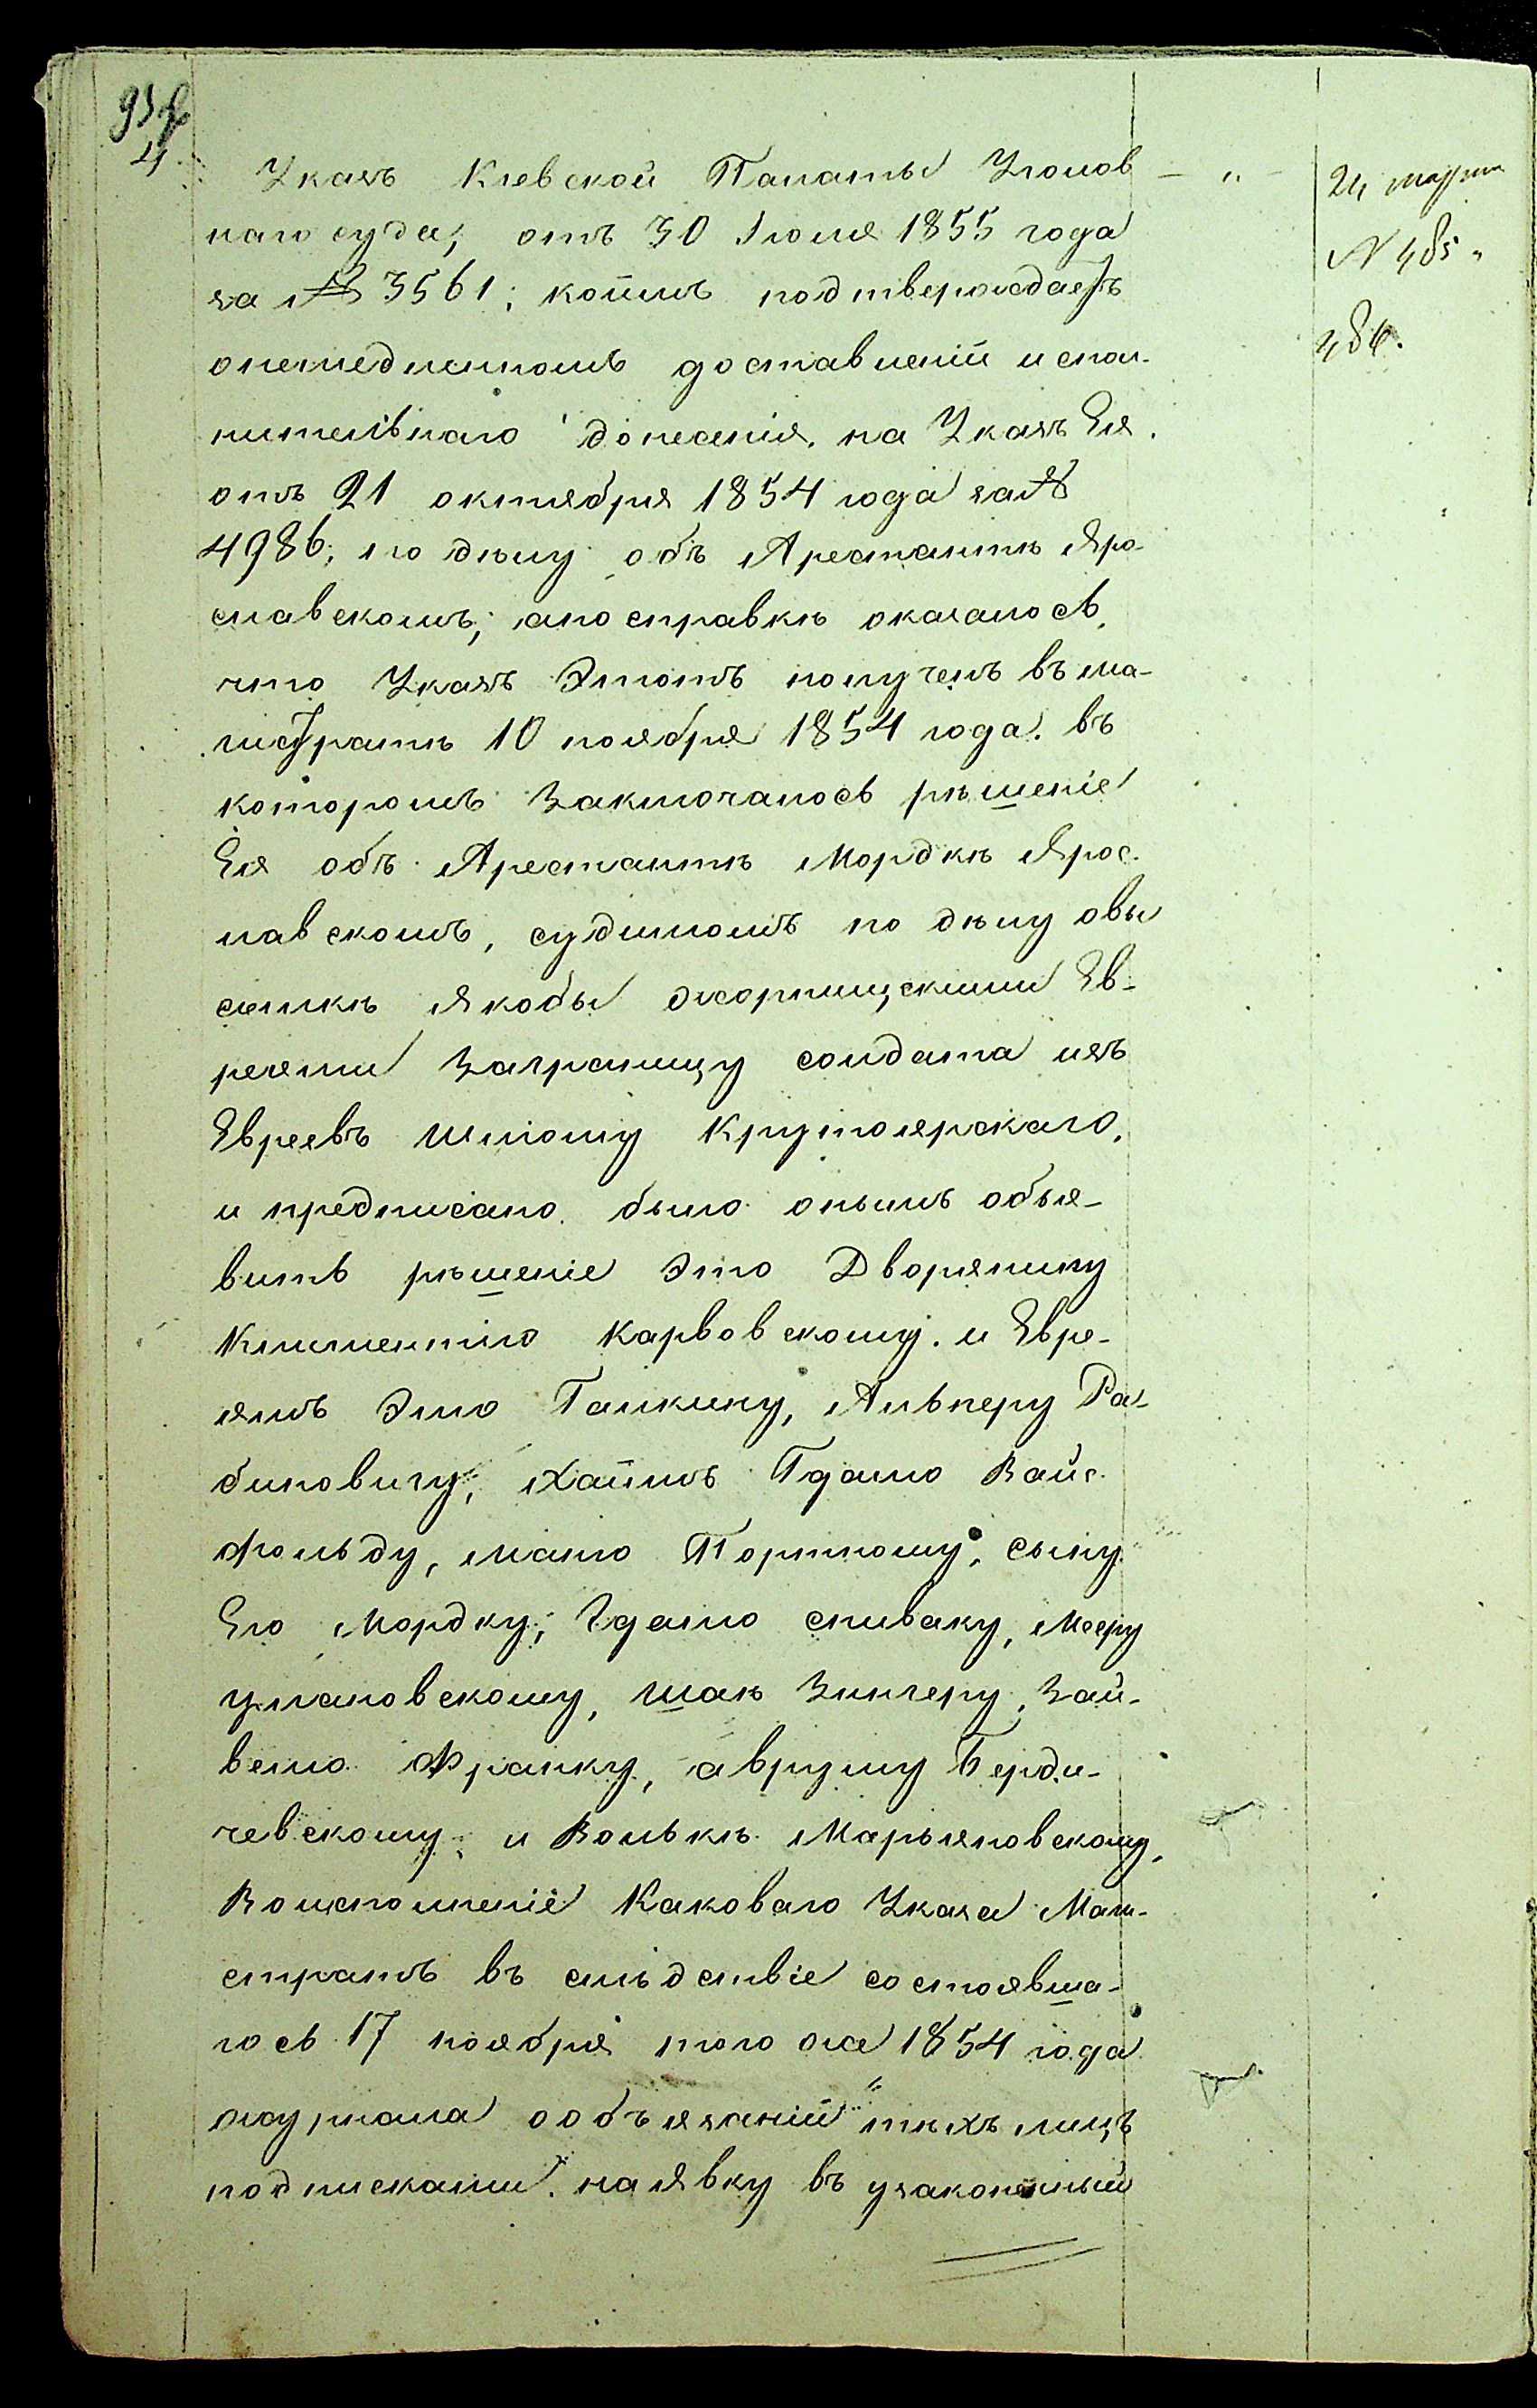 4
Указъ Кіевской Палаты Уголов
наго суда, отъ 30 Іюля 1855 года
за № 3561; коимъ подтверждаетъ
онемедлитомъ доставленіи испол-
нительнаго донесенія на Указъ Ея
отъ 21 октября 1854 года за №
4986; по дѣлу объ Арестантѣ Яро-
славскомъ; апосправкѣ оказалось,
что Указъ Этотъ полученъ въ ма-
гистратѣ 10 ноября 1854 года. въ
которомъ Заключалось рѣшеніе
Ея объ Арестантѣ Мордкѣ Ярос-
лавскомъ, судимомъ по дѣлу овы
сылкѣ Якобы жорнищскими Ев-
реями Заграницу солдата изъ
Евреевъ Шлиому Крутоярскаго,
и предписано было онымъ объя-
вить рѣшеніе Это Дворянину
Климентію Карвовскому. и Евре-
ямъ Элю Галкину, Альперу Ра-
биновичу, Хаимъ Гдалю Вайс-
фольду, Маню Портному, сыну
Его Мордку, Гдалю спиваку, Мееру
улановскому, Шаѣ Зингеру, Зай-
велю Франку, аврумy Берди-
чевскому и Волькѣ Марьяновскому,
Воисполненіе Каковаго Указа Маги-
стратъ въ слѣдствіе состоявша-
гось 17 ноября того же 1854 года
журнала ообъязаніи тѣхъ лицъ
подписками на Явку въ узаконенный
24 марта
№ 485
486.